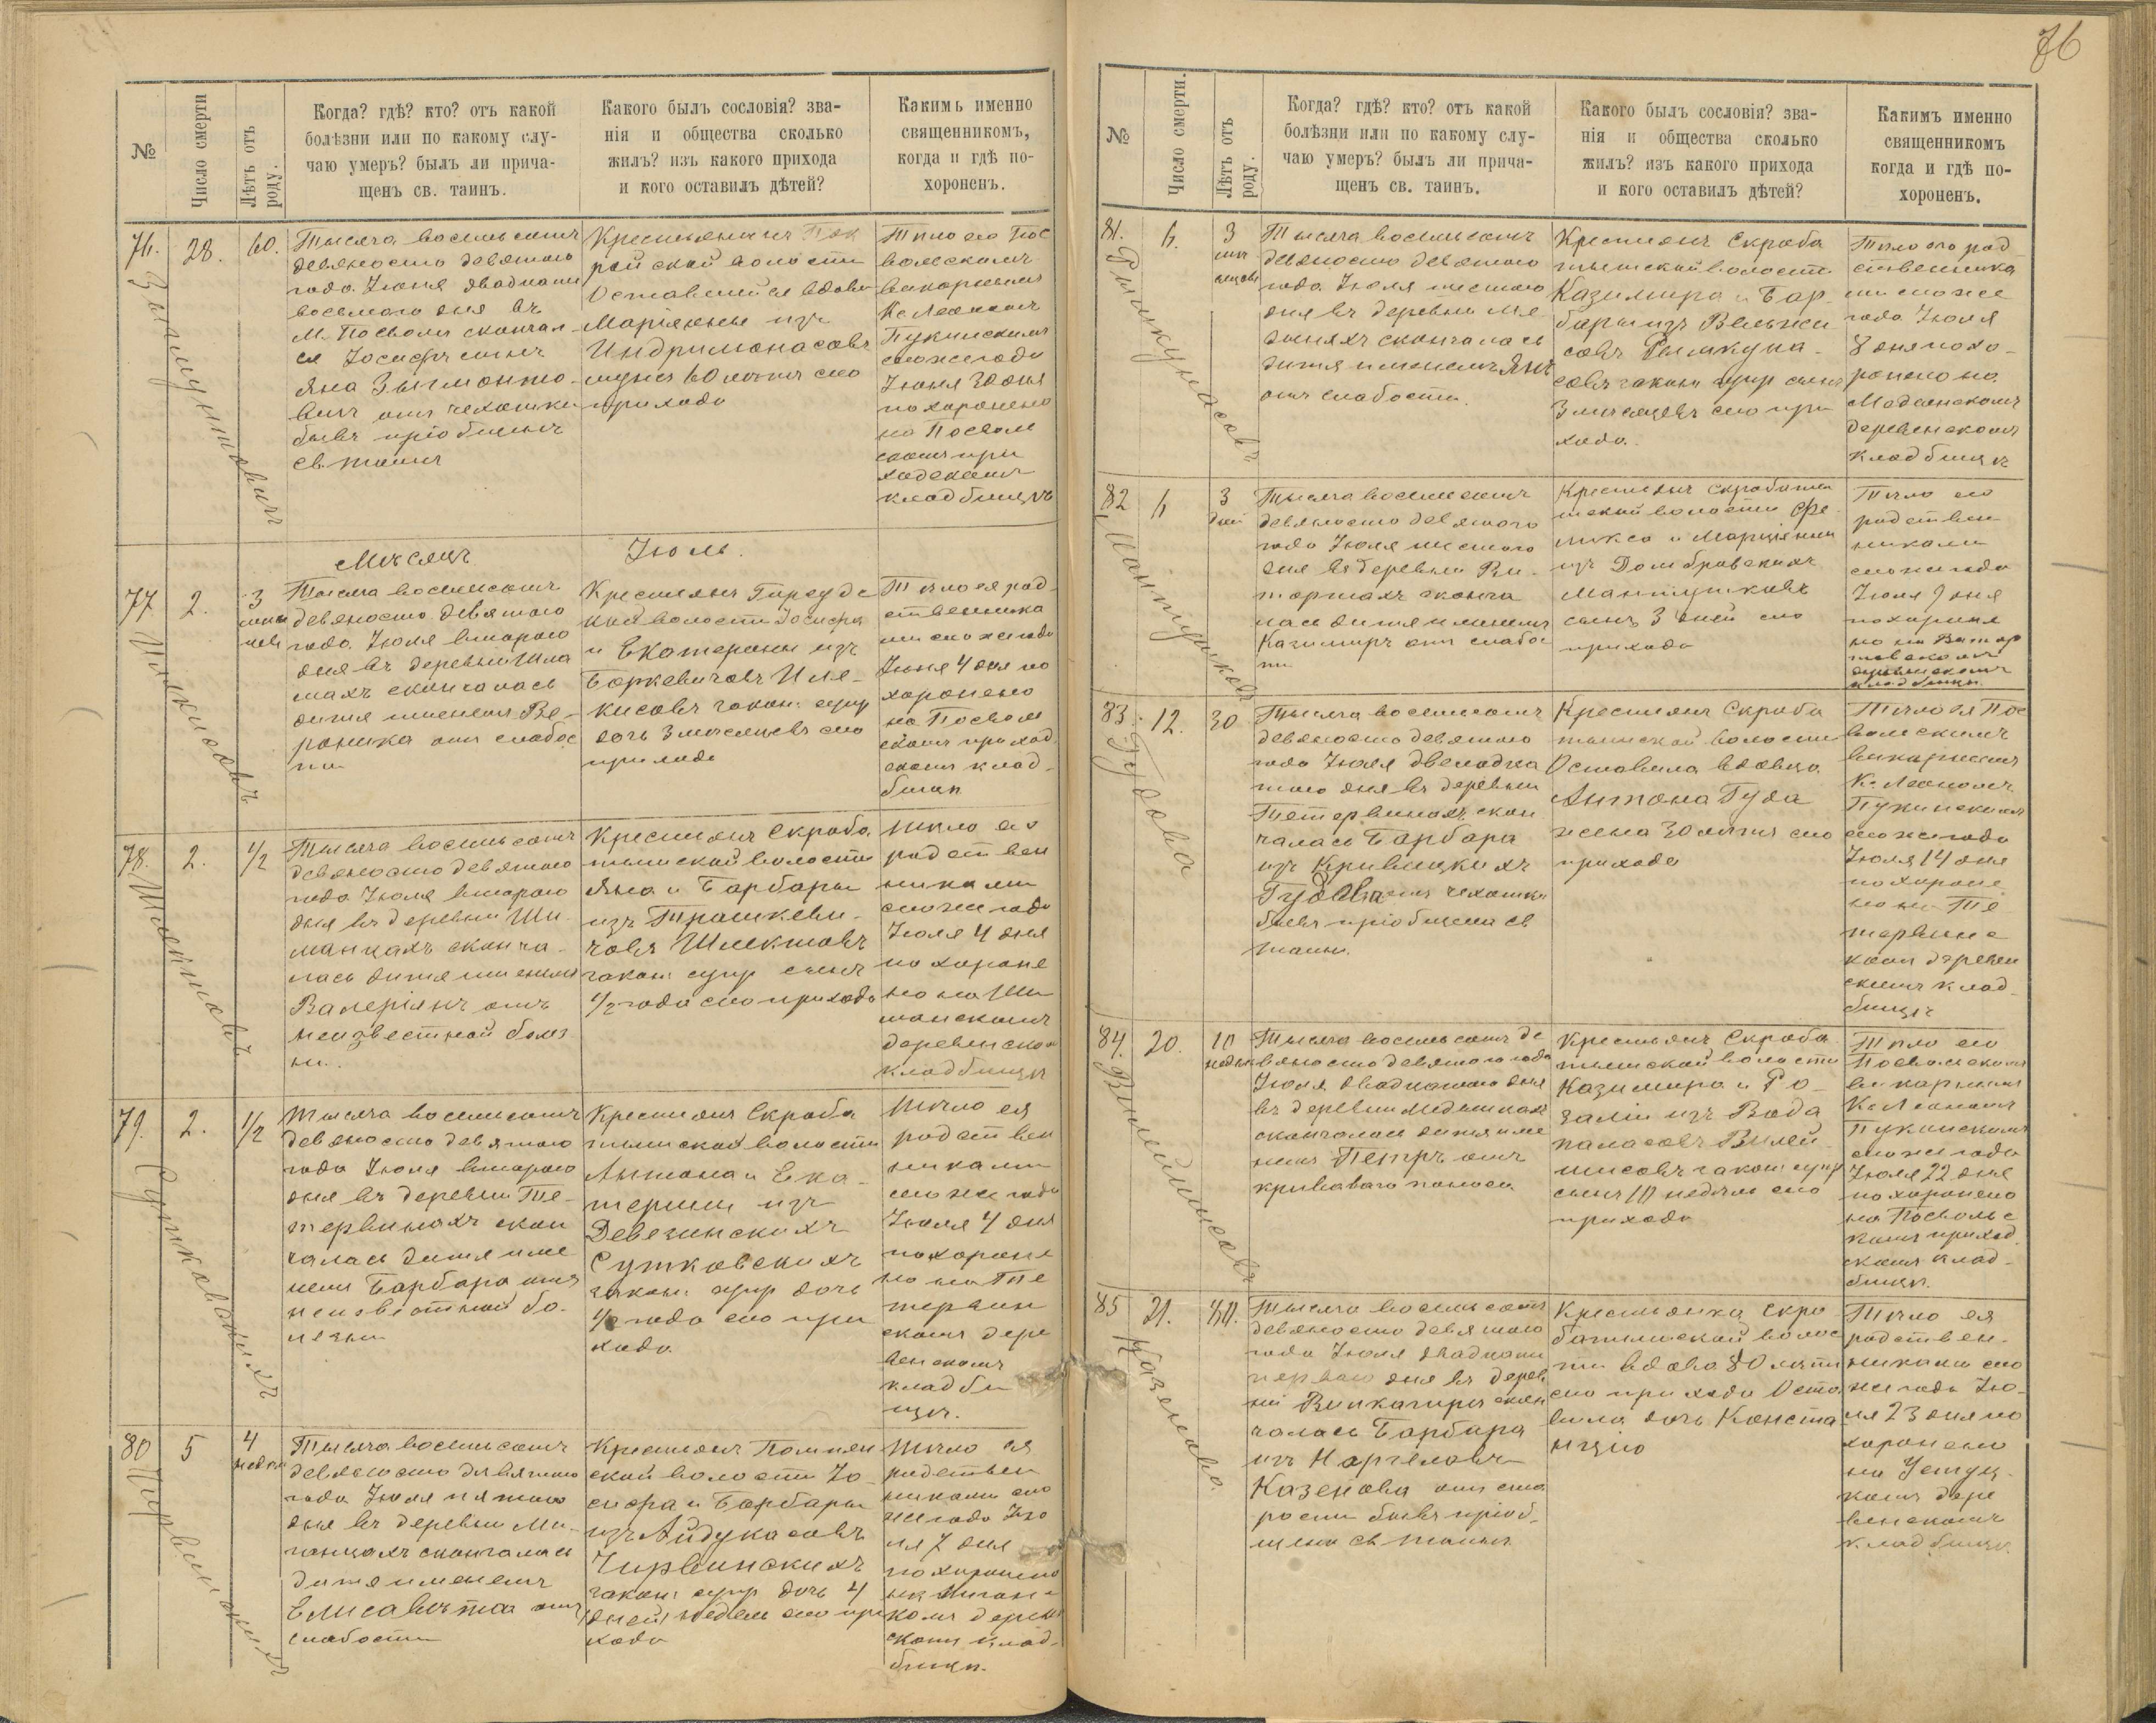 76
№
Число смерти
Лѣтъ отъ роду.
Когда? гдѣ? кто? отъ какой
болѣзни или по какому слу-
чаю умеръ? былъ ли прича-
щенъ св. таинъ.
Какого былъ сословія? зва-
нія и общества сколько
жилъ? изъ какого прихода
и кого оставилъ дѣтей?
Какимъ именно
священникомъ,
когда и гдѣ по-
хороненъ.
76.
28.
60.
Тысяча восемьсотъ
девяносто девятого
года Іюня двадцать
восьмого дня въ
М. Посволѣ скончал-
ся Іосифъ сынъ
Яна Зыгмонто-
вичъ отъ чехотки
бывъ пріобщенъ
св. таинъ
Крестьянинъ
волости
Оставшейся вдовы
Маріянны изъ
мужъ 60 лѣтъ сего
прихода
Тѣло его Пос
вольскимъ
викаріемъ
К. Леономъ
Пукинскимъ
сего же года
Іюня 30 дня
похоронено
на Посволь
скомъ при
ходскомъ
кладбищѣ
Мѣсяцъ Іюль.
77
2.
3
Тысяча восемьсотъ
девяносто девятого
года Іюля второго
дня въ деревни
скончалась
дитя именемъ Ве-
роника отъ слабос
ти
Крестьянъ
волости Іосифа
и Екатерины изъ
Боркевичовъ
закон. супр
дочь 3 мѣсяцевъ сего
прихода
Тѣло ея род
ственника
ми сего же года
Іюля 4 дня по
хоронено
на Посволь
скомъ приход
скомъ клад-
бищѣ
78.
2.
1/2
Тысяча восемьсотъ
девяносто девятого
года Іюля второго
дня въ деревни Ши-
манцахъ сконча-
лась дитя именемъ
Валеріянъ отъ
неизвестной болѣз
ни.
Крестьянъ Скроба
тышской волости
Яна и Барбары
изъ Трашкеви-
човъ
закон супр сынъ
1/2 года сего прихода
Тѣло его
родствен
никами
сего же года
Іюля 4 дня
похороне
но на Ши
манскомъ
деревенском
кладбищѣ
79.
2.
1/2
Сутковскихъ
Тысяча восемьсотъ
девяносто девятого
года Іюля второго
дня въ деревни Те-
тервинахъ скон
чалась дитя име
немъ Барбара отъ
неизвестной бо-
лезни
Крестьянъ Скроба
тышской волости
Антона и Ека-
терины изъ
Девезинскихъ
Сутковскихъ
закон супр дочь
1/2 года сего при
хода
Тѣло ея
родствен
никами
сего же года
Іюля 4 дня
похороне
но на Те
тервин
скомъ дере
венскомъ
кладби
щѣ.
80
5
4
недѣл
Тысяча восемьсотъ
девяносто девятого
года Іюля пятого
дня въ деревни Ми-
скончалась
дитя именемъ
Елисавѣта отъ
слабости
Крестьянъ Помпян
ской волости Іо-
сифа и Барбары
изъ Айдукасовъ
Чирвинскихъ
закон супр дочь 4
недѣль сего при
хода
Тѣло ея
родствен
никами сего
же года Ію
ля 7 дня
похоронено
комъ деревен
скомъ клад-
бищѣ.
№
Число смерти.
Лѣтъ отъ роду.
Когда? гдѣ? кто? отъ какой
болѣзни или по какому слу-
чаю умеръ? былъ ли прича-
щенъ св. таинъ.
Какого былъ сословія? зва-
нія и общества сколько
жилъ? изъ какого прихода
и кого оставилъ дѣтей?
Какимъ именно
священникомъ
когда и гдѣ по-
хороненъ.
81.
6.
3
Тысяча восемьсотъ
девяносто девятого
года Іюля шестого
дня въ деревни Ме
скончалась
дитя именемъ Янъ
отъ слабости.
Крестьянъ Скроба
тышской волости
Казимира и Бар-
бары изъ
закон супр сынъ
3 мѣсяцевъ сего при
хода.
Тѣло его род
ственника
ми сего же
года Іюля
8 дня похо-
ронено на
деревенскомъ
кладбищѣ
82
6
3
дней
Тысяча восемьсотъ
девяносто девятого
года Іюля шестого
дня въ деревни
сконча
лась дитя именемъ
Казимиръ отъ слабос
ти
Крестьянъ Скробатыш
ской волости Фе-
ликса и Маріянны
изъ Домбровскихъ
сынъ 3 дней сего
прихода
Тѣло его
родствен
никами
сего же года
Іюля 9 дня
похороне
но на
деревенскомъ
кладбищѣ.
83.
12.
30
Гудова
Тысяча восемьсотъ
девяносто девятого
года Іюля двенадца
того дня въ деревни
Тетервинахъ скон
чалась Барбара
изъ Кривицкихъ
Гудова отъ чехотки
бывъ пріобщена св
таинъ.
Крестьянъ Скроба
тышской волости
Оставила вдовца
Антона Гуда
жена 30 лѣтъ сего
прихода
Тѣло ея Пос
вольскимъ
викаріемъ
К. Леономъ
Пукинскимъ
сего же года
Іюля 14 дня
похороне
но на Те
тервинс
комъ деревен
скомъ клад-
бищѣ
84.
20.
10
недѣл
Тысяча восемьсотъ де
вяносто девятого года
Іюля двадцатого дня
въ деревни
скончалась дитя име
немъ Петръ отъ
кроваваго поноса
Крестьянъ Скроба
тышской волости
Казимира и Ро-
заліи изъ Вода
паласовъ
закон супр
сынъ 10 недѣль сего
прихода
Тѣло его
Посвольскимъ
викаріемъ
К. Леономъ
Пукинскимъ
сего же года
Іюля 22 дня
похоронено
на Посвольс
комъ приход
скомъ клад-
бищѣ.
85
21.
80.
Казенова.
Тысяча восемьсотъ
девяносто девятого
года Іюля двадцать
первого дня въ дерев
ни скон
чалась Барбара
изъ
Казенова отъ ста
рости бывъ пріоб-
щена св таинъ
Крестьянка Скро
батышской волос
ти вдова 80 лѣтъ
сего прихода Оста
вила дочь Конста
нцію
Тѣло ея
родствен-
никами сего
же года Ію-
ля 23 дня по
хоронено
на
комъ дере
венскомъ
кладбищѣ